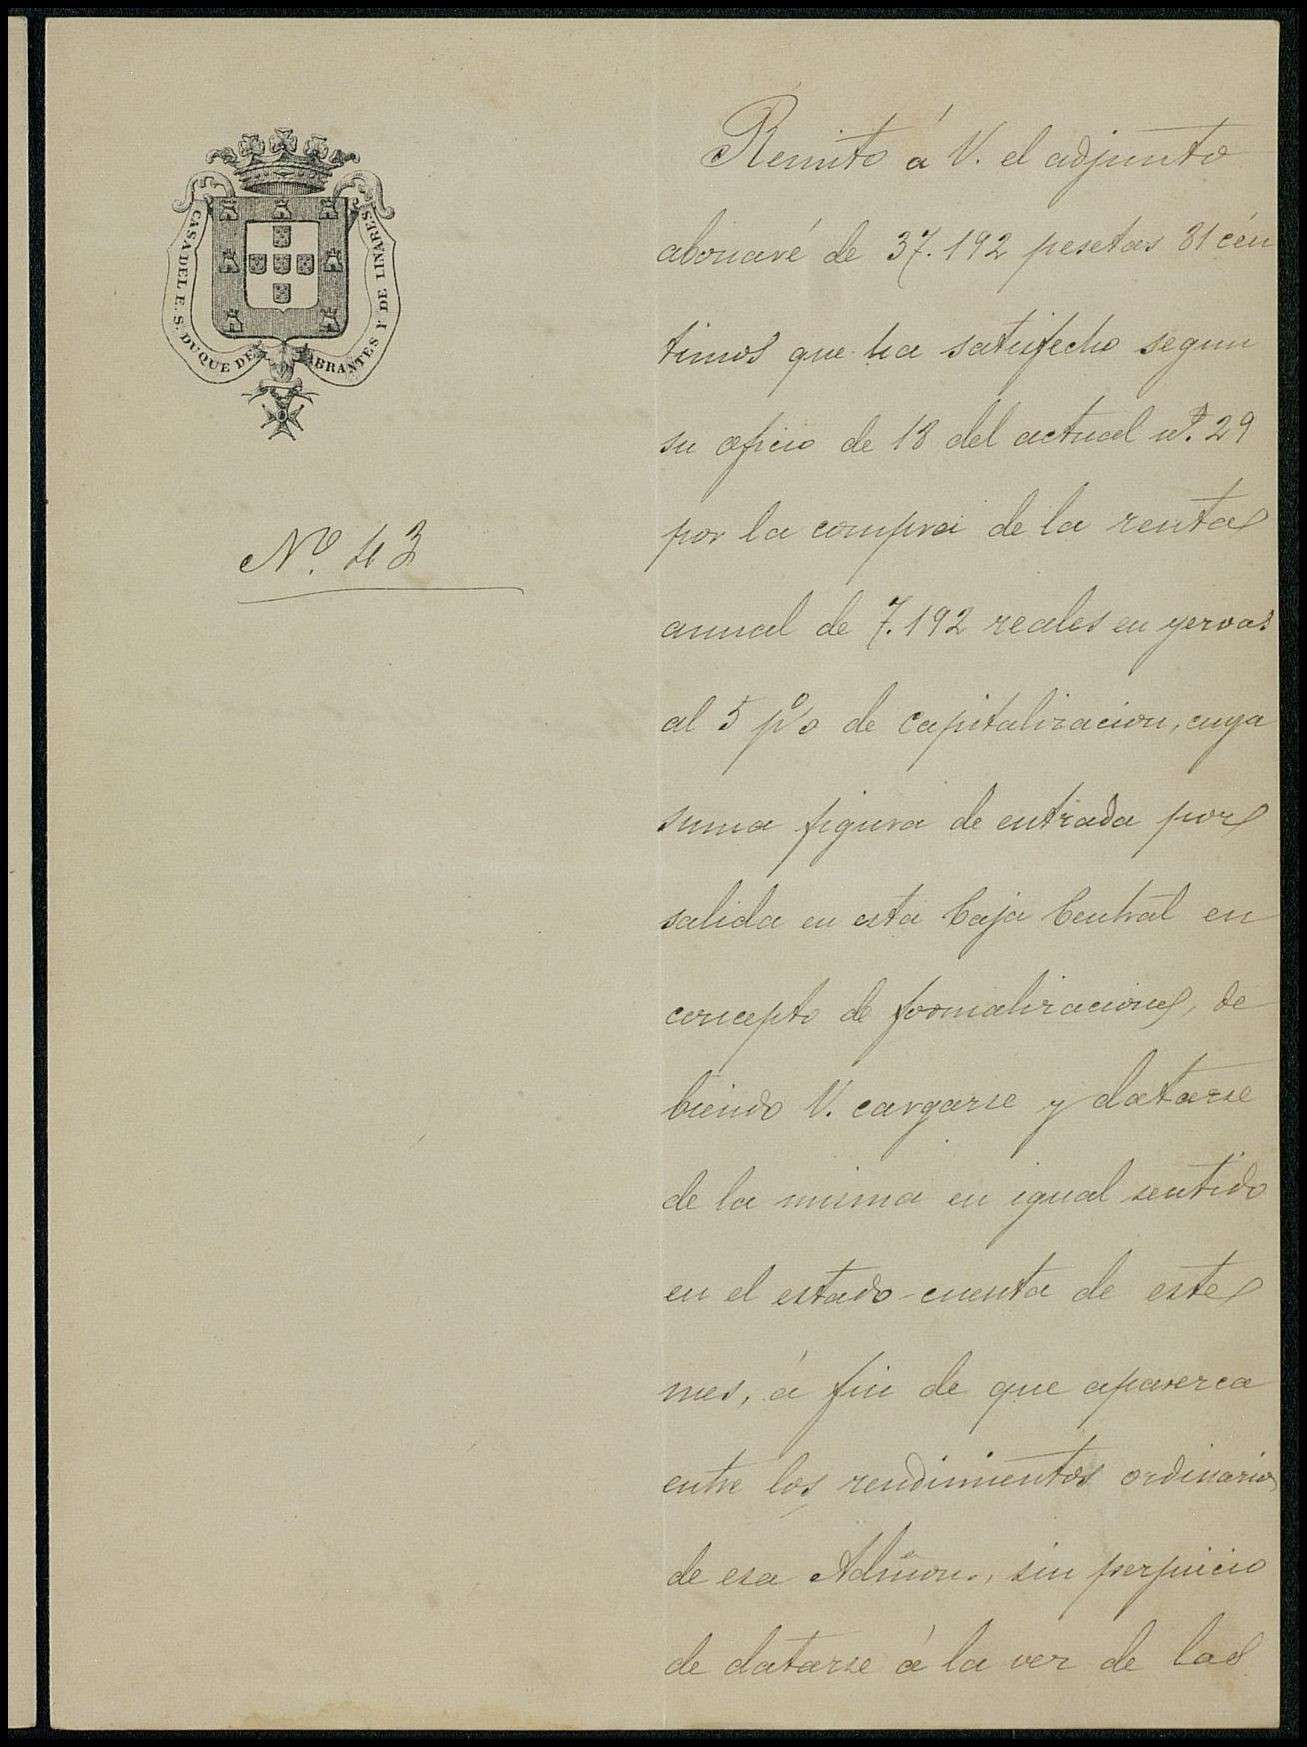 CASA DEL E. S. DUQUE DE ABRANTES Y DE LINARES
Nº. 43
Remito á V. el adjunto
abonaré de 37.192 pesetas 31 cén
timos que ha satisfecho segun
su oficio de 18 del actual nº. 29
por la compra de la renta
anual de 7.192 reales en yervas
al 5 pº/o de capitalizacion, cuya
suma figura de entrada por
salida en esta Caja Central en
concepto de formalizaciones, de
biendo V. cargarse y datarse
de la misma en igual sentido
en el estado-cuenta de este
mes, á fin de que aparezca
entre los rendimientos ordinarios
de esa Admon., sin perjuicio
de datarse á la vez de las